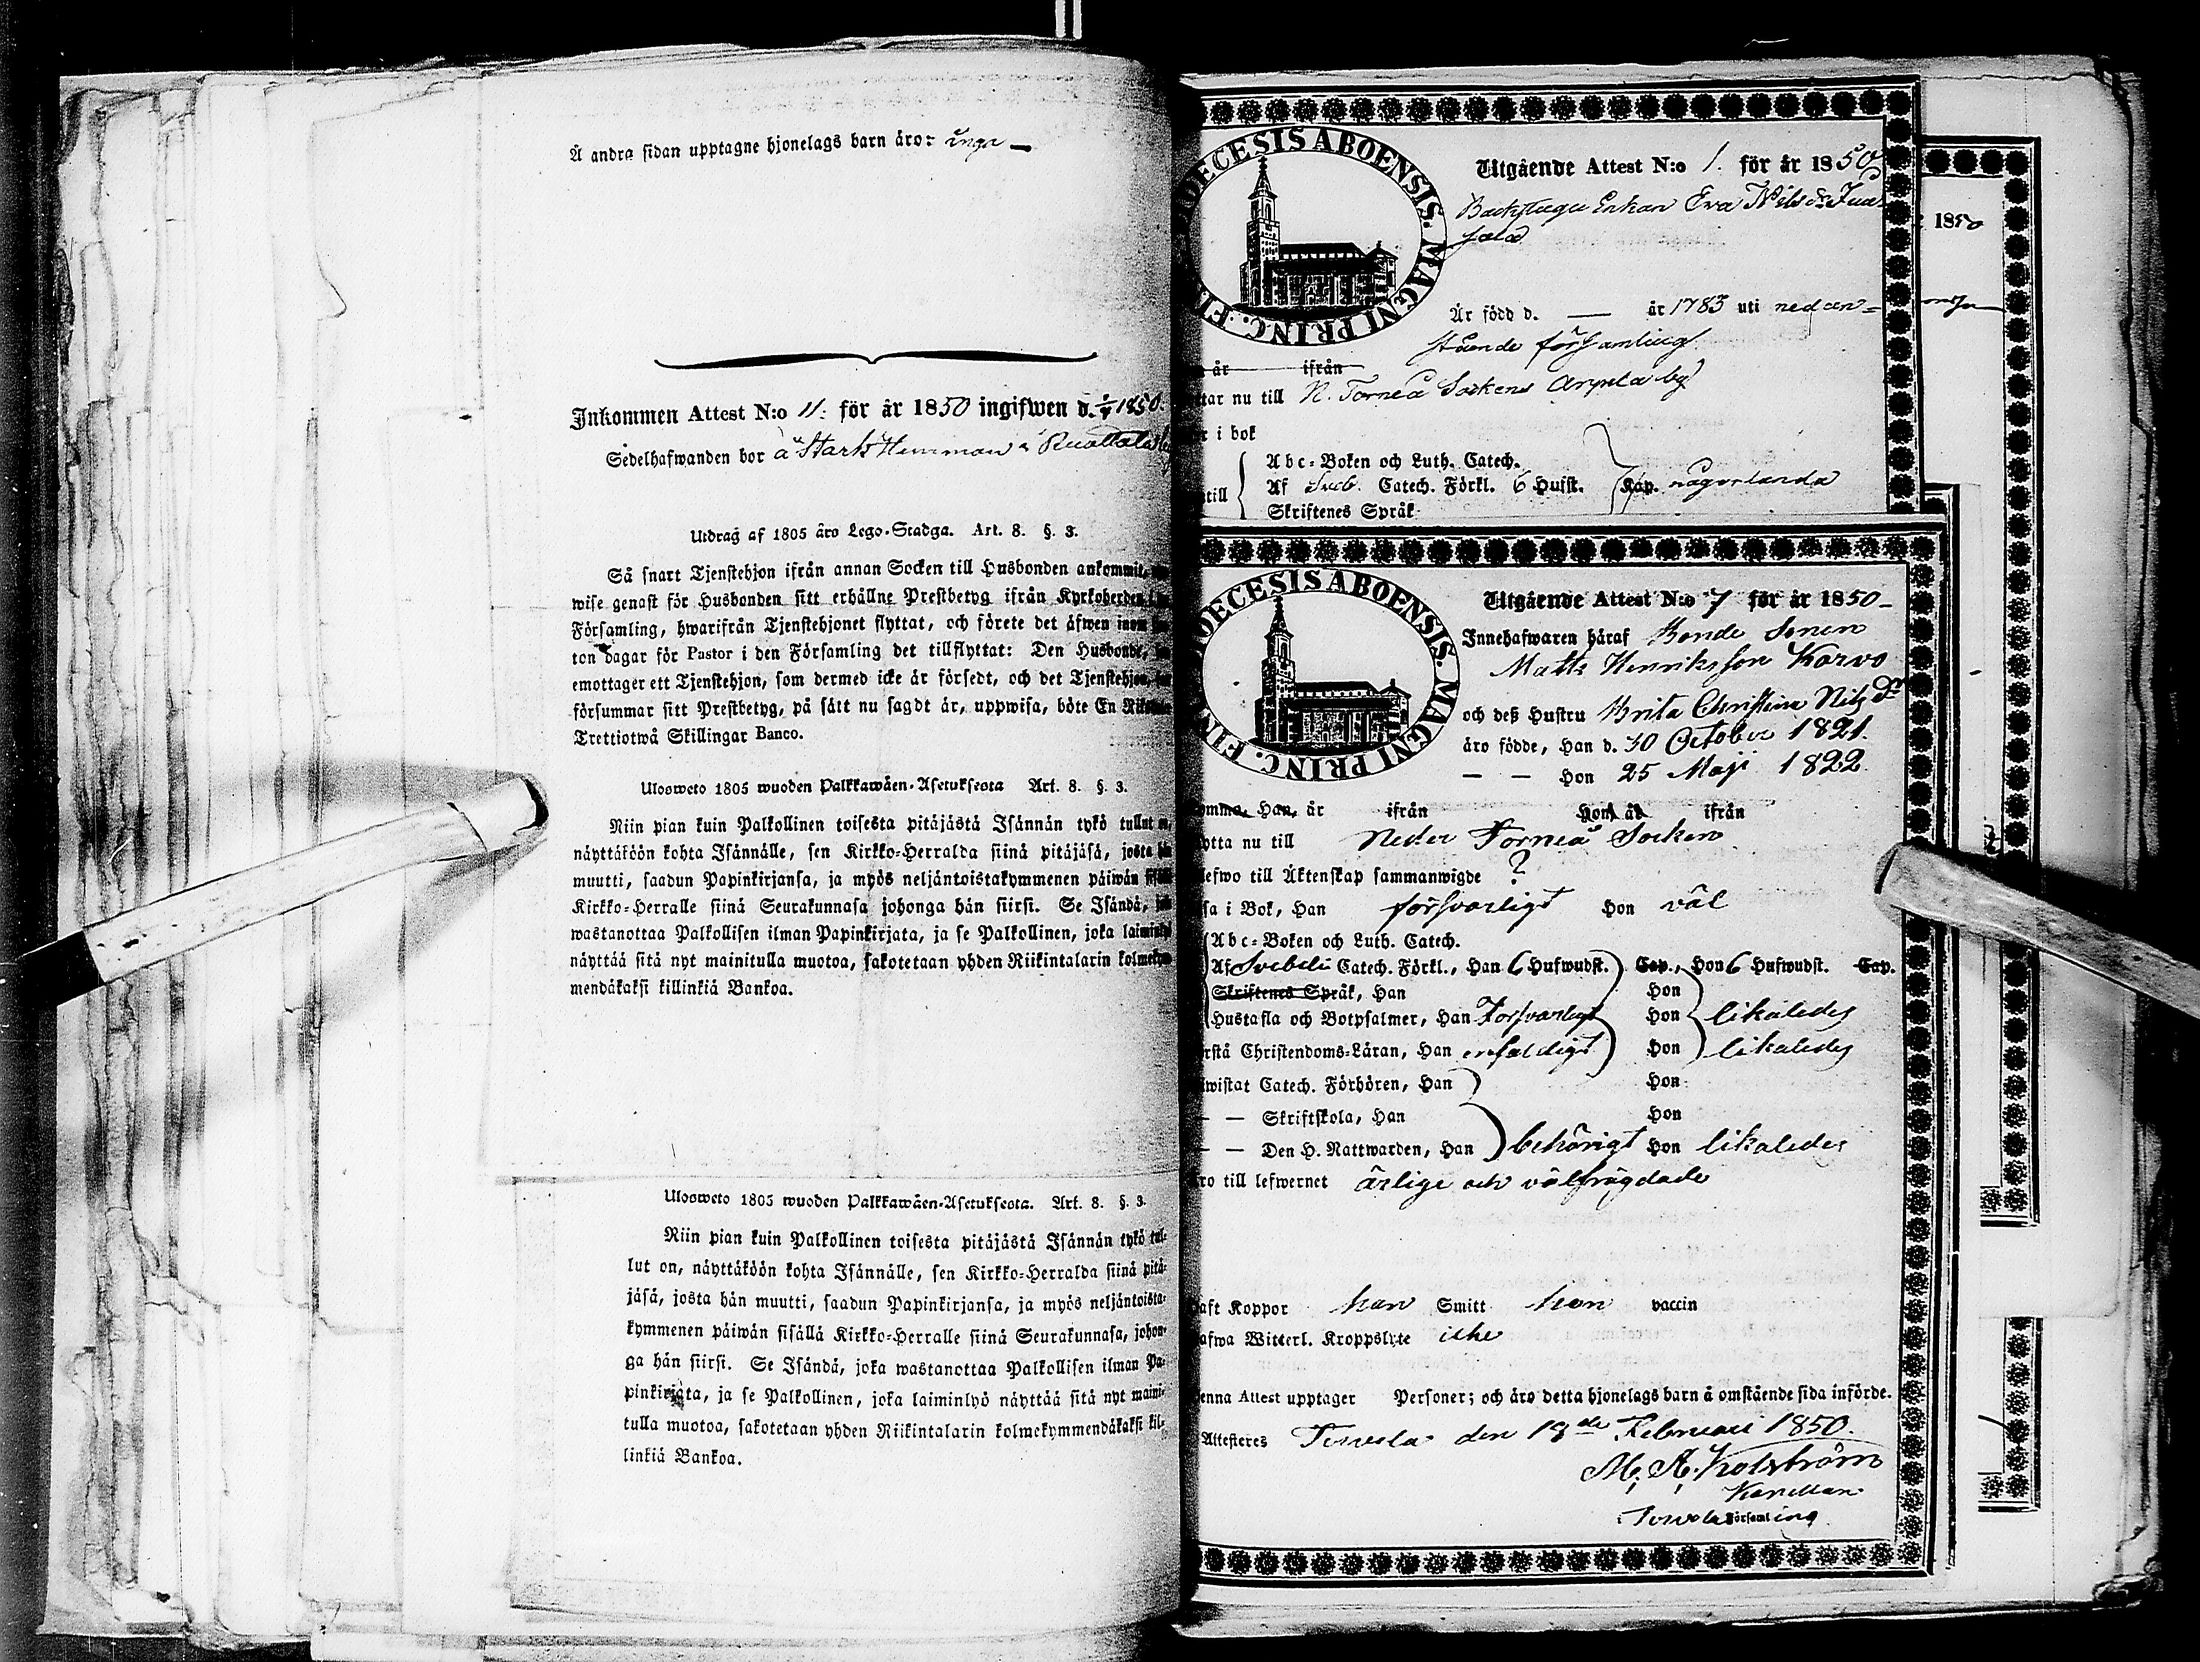 Å andra sidan upptagne hjonelags barn äro: inga —
Inkommen Attest N:o 11: för år 1850 ingifwen d. 1850.
Sedelhafwanden bor å Stark Hemman i Ruottala
Utdrag af 1805 års Lego-Stadga. Art. 8. §. 3.
Så snart Tjenstehjon ifrån annan Socken till Husbonden ankommit,
wise genast för Husbonden sitt erhållne Prestbetyg ifrån Kyrkoherden
Församling, hwarifrån Tjenstehjonet flyttat, och förete det äfwen inom
ton dagar för Pastor i den Församling det tillflyttat: Den Husbonde,
emottager ett Tjenstehjon, som dermed icke är försedt, och det Tjenstehjon,
försummar sitt Prestbetyg, på sätt nu sagdt är, uppwisa, böte En
Trettiotwå Skillingar Banco.
Ulosweto 1805 wuoden Palkkawäen-Asetuksesta Art. 8. §. 3.
Niin pian kuin Palkollinen toisesta pitäjästä Isännän tykö tullut
näyttäköön kohta Isännälle, sen Kirkko-Herralda siinä pitäjäsä, josta
muutti, saadun Papinkirjansa, ja myös neljäntoistakymmenen päiwän
Kirkko-Herralle siinä Seurakunnasa johonga hän siirsi. Se Isändä,
wastanottaa Palkollisen ilman Papinkirjata, ja se Palkollinen, joka
näyttää sitä nyt mainitulla muotoa, sakotetaan yhden Riikintalarin
mendäkaksi killinkiä Bankoa.
Ulosweto 1805 wuoden Palkkawäen-Asetuksesta. Art. 8. §. 3.
Niin pian kuin Palkollinen toisesta pitäjästä Isännän tykö tul-
lut on, näyttäköön kohta Isännälle, sen Kirkko-Herralda siinä pitä-
jäsä, josta hän muutti, saadun Papinkirjansa, ja myös neljäntoista-
kymmenen päiwän sisällä Kirkko-Herralle siinä Seurakunnasa, johon-
ga hän siirsi. Se Isändä, joka wastanottaa Palkollisen ilman Pa-
pinkirjata, ja se Palkollinen, joka laiminlyö näyttää sitä nyt maini-
tulla muotoa, sakotetaan yhden Riikintalarin kolmekymmendäkaksi kil-
linkiä Bankoa.
DIOECESIS ABOENSIS. MAGNI PRINC. FIN
Utgående Attest N:o 1. för år 1850
Backstugu Enkan Eva Nils dr
Är född d. — år 1783 uti nedan-
stående församling
år ifrån
nu till N. Torneå Sockens Arpela by
i bok
Abc-Boken och Luth. Catech.
till Af Sveb. Catech. Förkl. 6 Hufst. Kap. någorlunda
Skriftenes Språk
1850
DIOECESIS ABOENSIS. MAGNI PRINC. FIN
Utgående Attest N:o 7 för år 1850 -
Innehafwaren häraf Bonde Sonen
Matts Henriksson Karvo
och deß Hustru Brita Christina Nils Dr
äro födde, Han d. 30 October 1821.
— — Hon 25 Maji 1822
Han, år ifrån Hon år ifrån
nu till Neder Torneå Socken
till Äktenskap sammanwigde ?
i Bok, Han försvarligt Hon väl
Abc-Boken och Luth. Catech.
Af Svebelii Catech. Förkl., Han 6 Hufwudst. Cap., Hon 6 Hufwudst. Cap.
Skriftenes Språk, Han Hon
Hustafla och Botpsalmer, Han Försvarligt Hon likaledes
Christendoms-Läran, Han enfaldigt Hon likaledes
Catech. Förhören, Han Hon
— Skriftskola, Han Hon
— — Den H. Nattwarden, Han behörigt Hon likaledes
till lefwernet ärlige och välfrägdade
Koppor han Smitt hon vaccin
Witterl. Kroppslyte icke
Attest upptager Personer; och äro detta hjonelags barn å omstående sida införde.
Attesteres Terwola den 18de Februari 1850.
M. A. Holmström
Kapellan
Terwola Församling